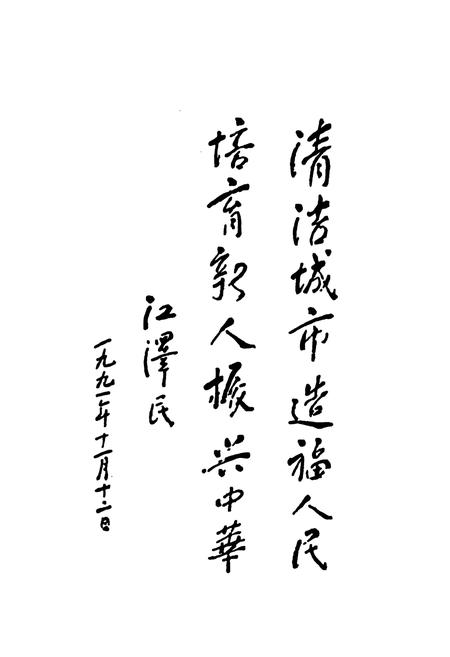 清洁城市造福人民
培育新人振兴中華
江澤民
一九九一年十一月十二日